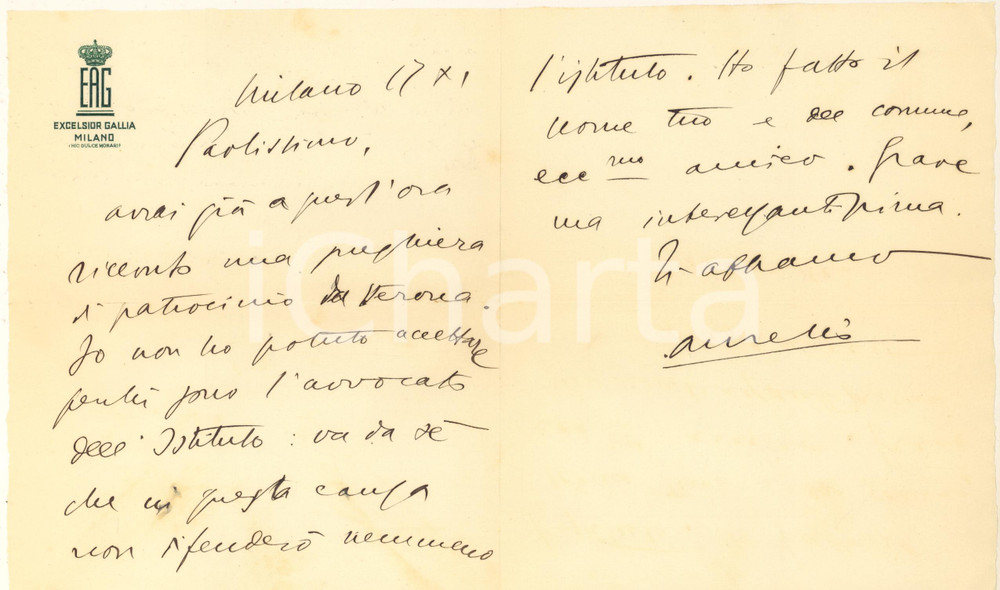 EAG
EXCELSIOR GALLIA
MILANO
Milano 17 XI
Paolissimo,
avrai già a quest'ora
ricevuto una preghiera
di patrocinio da Verona.
Io non ho potuto accettare
perché sono l'avvocato
dell'Istituto: va da sé
che in questa causa
non difenderò nemmeno
l'istituto. Ho fatto il
nome tuo e del comune,
ecc.mo amico. Grave
ma interessantissima.
Ti abbraccio
Aurelio
iCharta